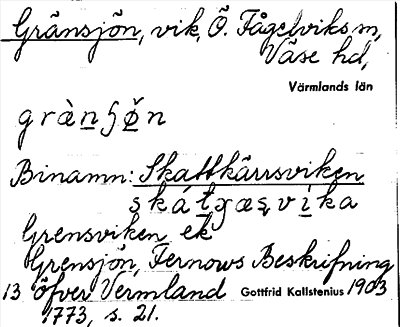 Gränsjön, vik, Ö. Fågelviks sn,
Väse hd,
Värmlands län
grằn̲ʃø̌n
Binamn: Skattkärrsviken
skát̲çæs̨vi̲ka
Grensviken ek
Grensjön, Fernows Beskrifning
13 öfver Vermland Gottfrid Kallstenius 1903
1773, s. 21.